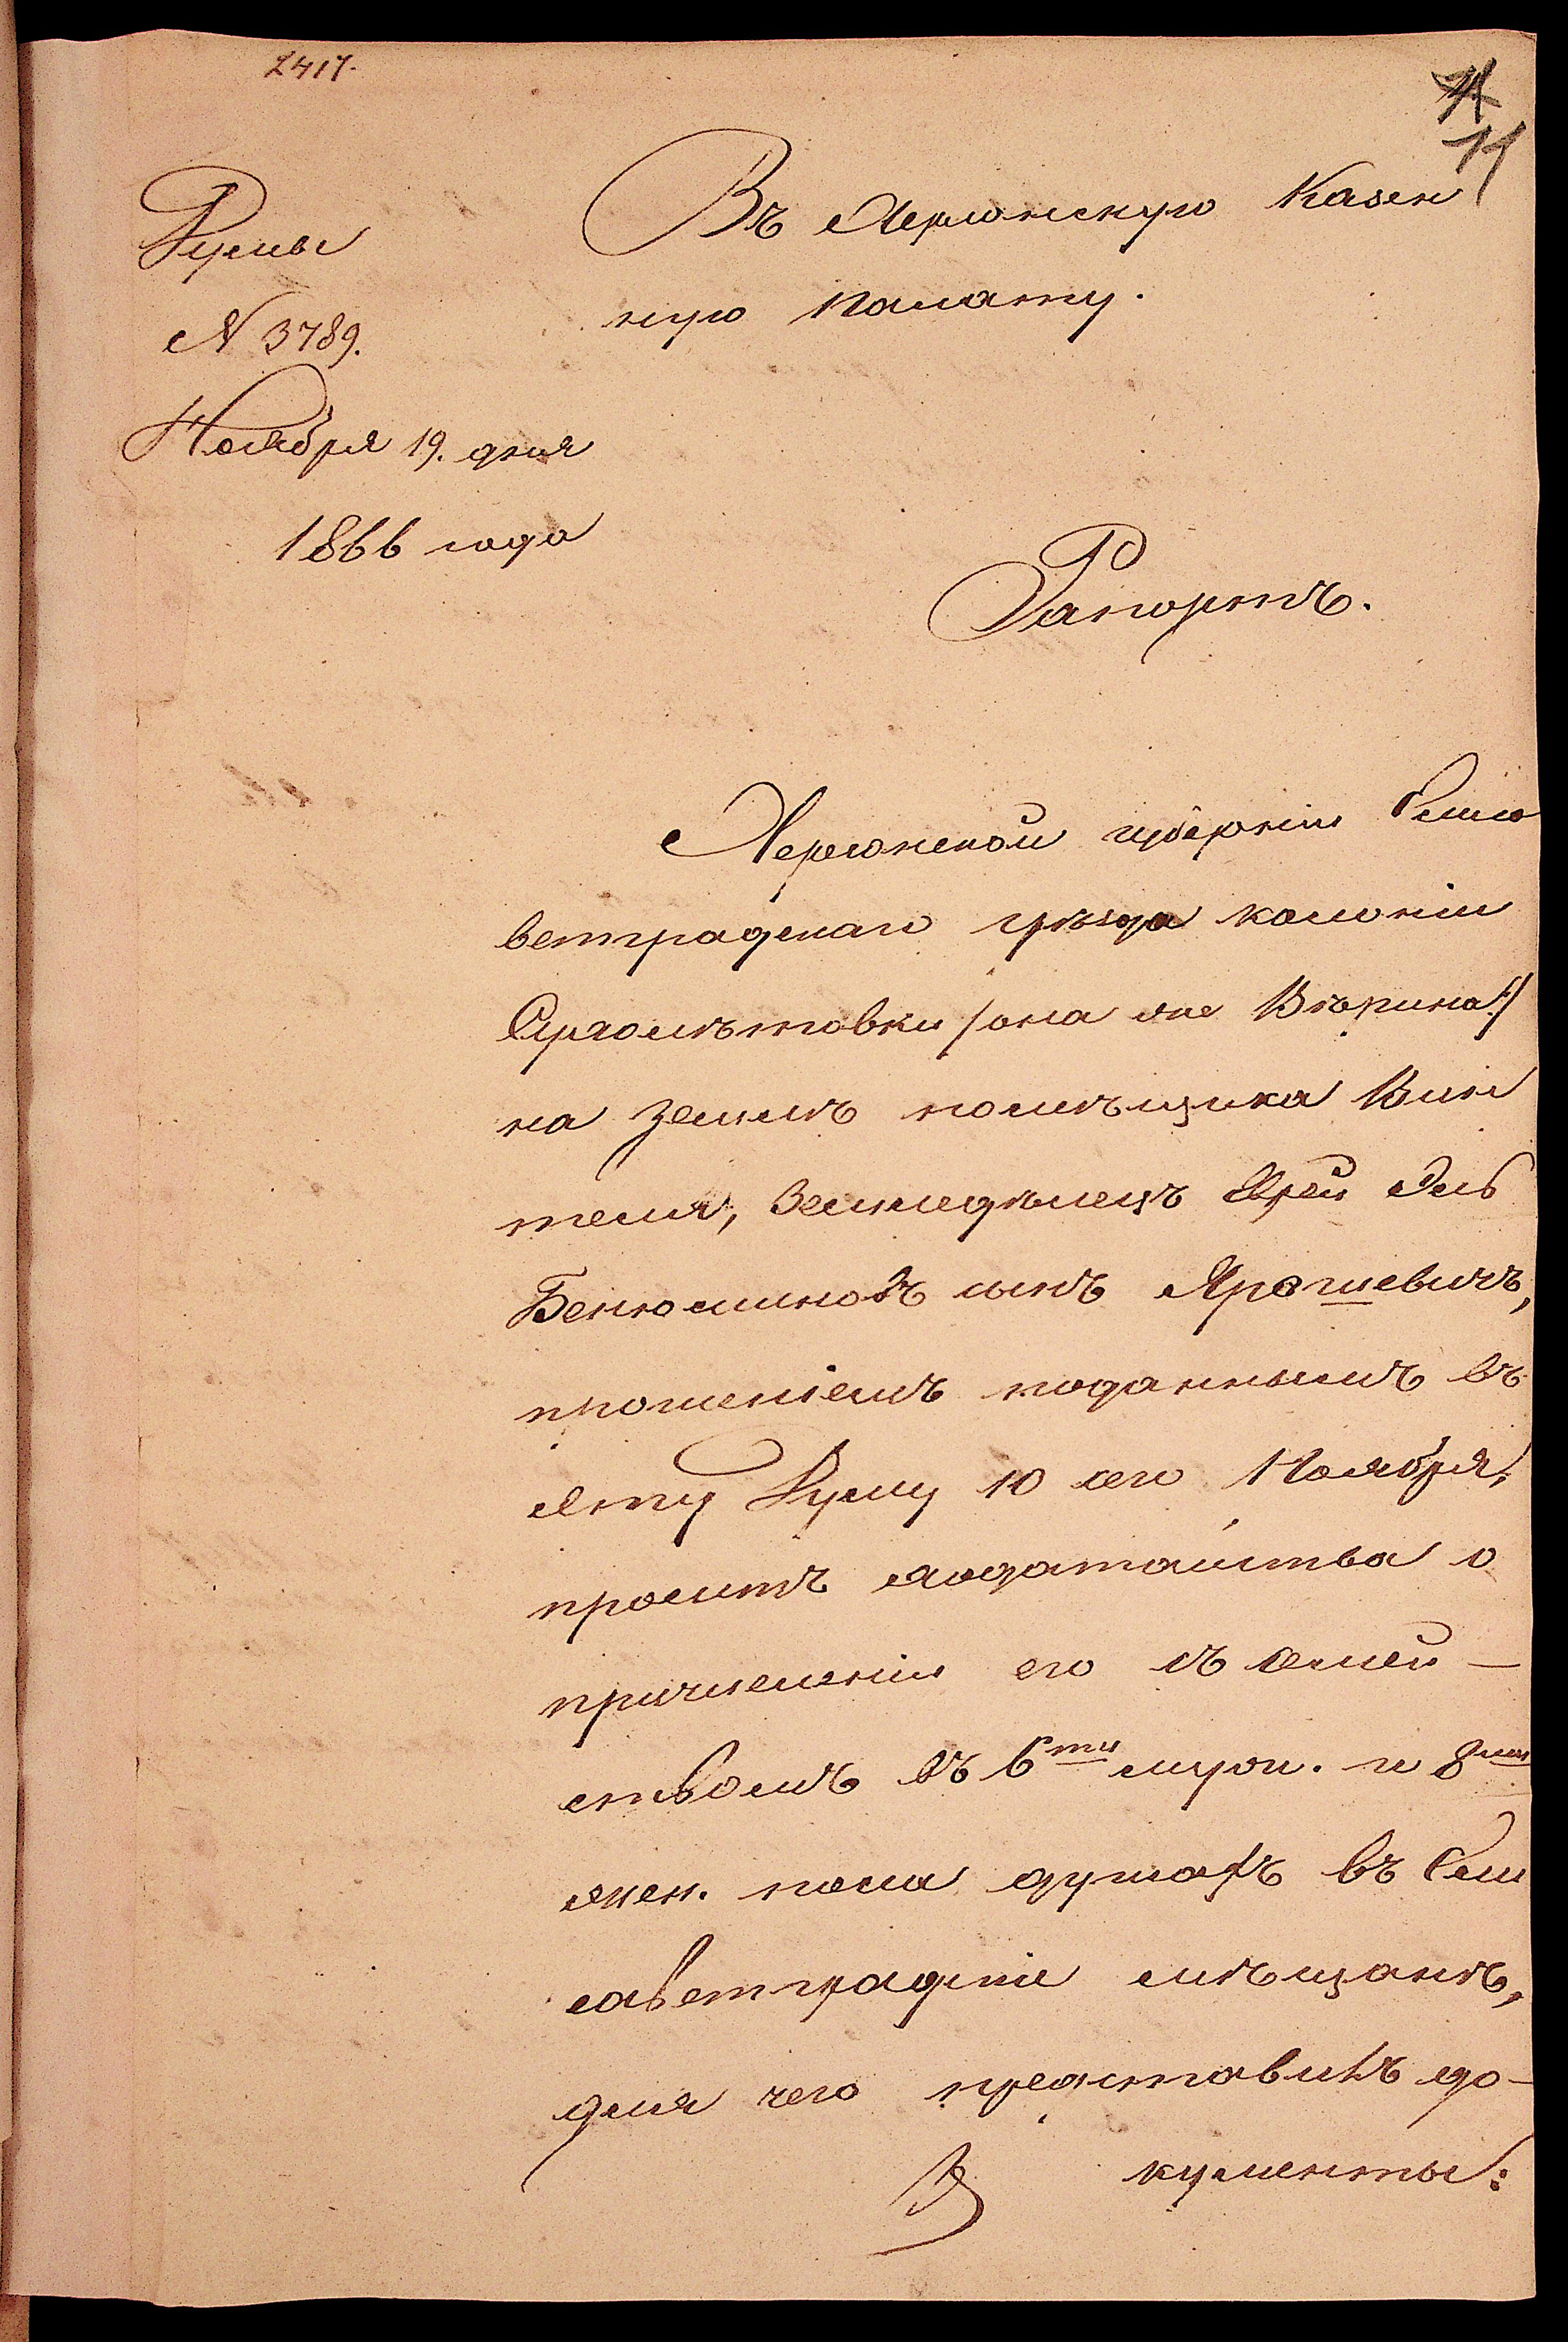 2417.
71
71
Думы
№ 3789.
Ноября 19. дня
1866 года
Въ Херсонскую Казен
ную Палату.
Рапортъ.
Херсонской губерніи Елисо
ветградскаго уѣзда колоніи
/она же Вѣрина/
на землѣ помѣщика Вин
теля, Земледѣлецъ Еврей Эль
Беньоминовъ сынъ Ярошевичъ,
прошеніемъ поданнымъ въ
эту Думу 10 сего Ноября,
проситъ ходатайства о
причисленіи его съ семей-
ствомъ въ 6ти муж. и 8ми
жен. пола душахъ въ Ели
саветградскіе мѣщане,
для чего представилъ до-
кументы: